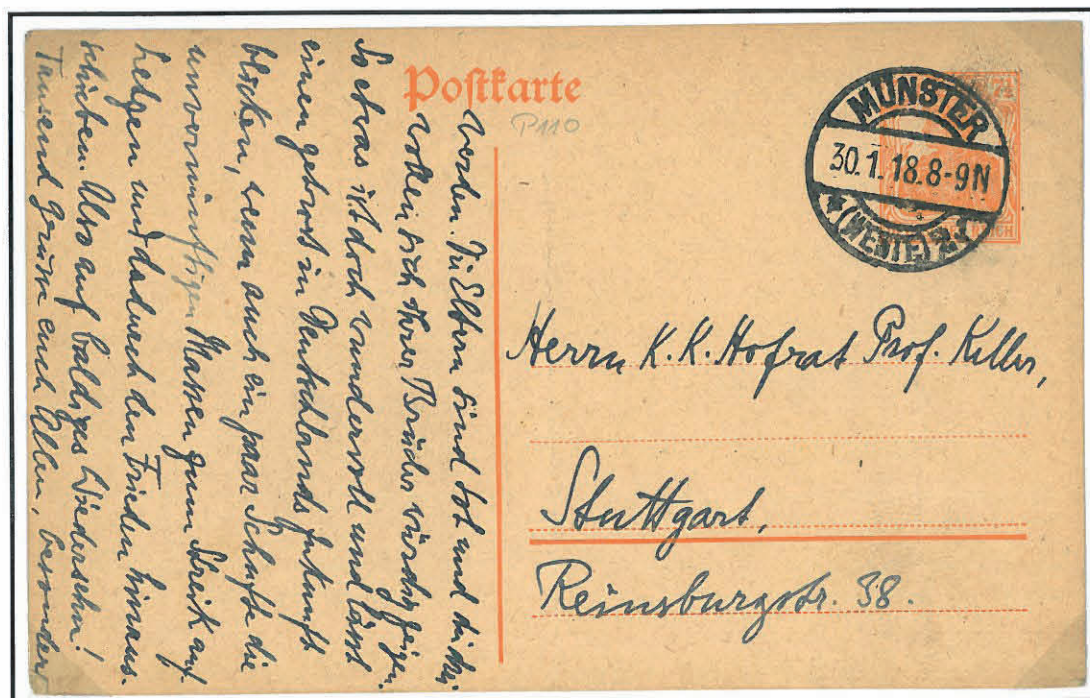 Postkarte
P110
MÜNSTER
30.1.18.8-9N
(WESTF.)
REICH
Herrn K. K. Hofrat Prof. Keller,
Stuttgart,
Reinsburgstr. 38.
worden. Die Eltern sind tot und die drei
wollen sich ihrer Brüder würdig zeigen.
So etwas ist doch wundervoll und lässt
einen getrost in Deutschlands Zukunft
blicken, wenn auch ein paar Schufte die
unvernünftigen Massen zum Streik auf
hetzen und dadurch den Frieden hinaus-
schieben. Also auf baldiges Wiedersehn!
Tausend Grüsse euch Allen, besonders